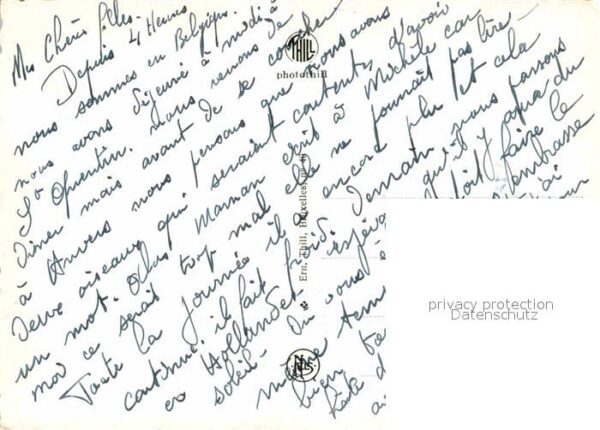 Mes Chères filles.
Depuis 4 Heures
nous sommes en Belgique.
nous avons déjeuné à midi à
St Quentin. nous venons de
Diner mais avant de se coucher
à Anvers nous pensons que nous avons
deux oiseaux qui seraient contents d'avoir
un mot. Maman écrit à Michèle car
moi ce serait trop mal elle ne pourrait pas lire
Toute la journée il a encore plu et cela
continue. il fait froid. Demain nous passons
en Hollande. espérons qu'il y aura du
soleil. On vous
même tem
bien
doit faire le
embrasse
THILL
photothill
Ern. Thill, Bruxelles, n°
NELS
privacy protection
Datenschutz